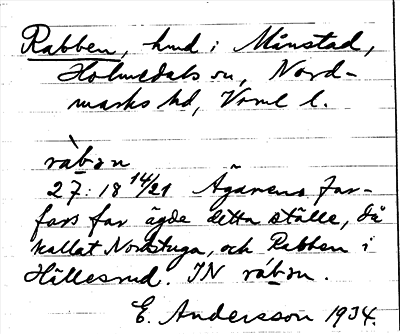 Rabben, hmd i Månstad,
Holmedals sn, Nord-
marks hd, Vrml l.
ràbən
27: 18 14/21 Ägarens far-
fars far ägde detta ställe, då
kallat Nordstuga, och Rabben i
Hällesrud. IN rábən.
E. Andersson 1934.